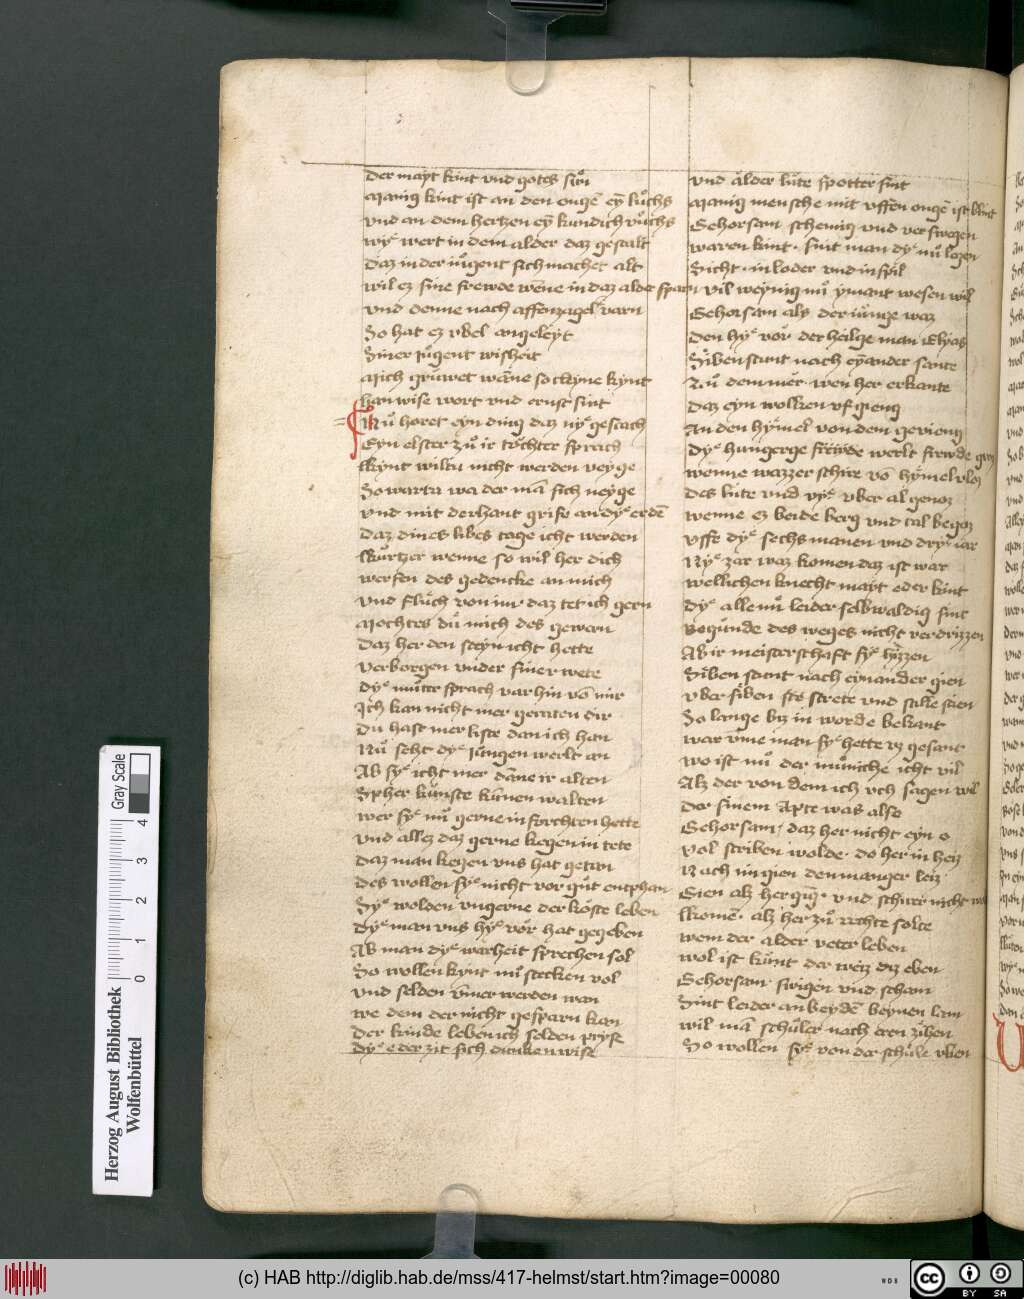 Der mayt kint vnd gotes sůn
Manig kint ist an den ougē eȳ luͦchs
vnd an dem hertzen eȳ kundich vuͦchs
wyͤ wert in dem alder daz gestalt
Daz in der iuͦgent sich machet alt
wil ez sine frewde wēne in daz alder sparn
vnd denne nach affenzagel varn
So hat ez vbel angeleyt
Siner Jugent wisheit
Mich gruwet wāne so cleyne kynt
han wise wort vnd ernst sint
Nuͦ horet eyn ding daz nyͤ gesach
Eyn elster zuͦ ir tochter sprach
kynt wiltu nicht werden veyge
So warta wa der mā sich neyge
vnd mit der hant grife an dyͤ erdē
Daz dines libes tage icht werden
kurtzer wenne so wil her dich
werfen des gedencke an mich
vnd fluch von im daz tet ich gern
Mochtes du mich des gewern
Daz her den steyn icht hette
verborgen vnder siner wete
Dyͤ muter sprach var hin vō mir
Ich kan nicht mer geraten dir
Du hast mer liste dan ich han
Nuͦ seht dyͤ Jungen werlt an
Ab syͤ icht mer dāne ir alten
Spher kunste kūnen walten
wer syͤ nuͦ gerne in forchten hette
vnd allez daz gerne kegen in tete
Daz man kegen vns hat getan
Des wollen syͤ nicht vor gut entphan
Syͤ wolden vngerne der koste leben
Dyͤ man vns hyͤ vor hat gegeben
Ab man dyͤ warheit sprechen sol
So wollen kynt nuͦ stecken vol
vnd selden ūmer werden wan
we dem der nicht gesparn kan
Der kinde leben ich selden pryse
Dyͤ e der zit sich dunken wise
vnd alder lute spotter sint
Manig mensche mit uffen ougē ist blint
Gehorsam schemig vnd verswigen
waren kint · sint man dyͤ nuͦ legen
Sicht · in loder vnd in spil
vil weynig nuͦ ymant wesen wil
Gehorsam als der iunge waz
Den hyͤ vor der heilge man Elyas
Sibenstunt nach eynander sante
Nuͦ dem mer · wen her erkante
Daz eyn wolken vf gieng
An den hymel von dem gevieng
Dyͤ hungerge werlt frewde groz
wenne wazzer schire vō hymel vloz
Des lute vnd vyͤ vber al genoz
wenne ez beide berg vnd tal begoz
vffe dyͤ sechs manen vnd dry iar
Nyͤ zar waz komen daz ist war
wellichen knecht mayt eder kint
Dyͤ alle nuͦ leider selbwaldig sint
Begunde des weges nicht verdrizzen
Ab ir meisterschaft syͤ hizzen
Siben stunt nach eynander gien
vber siben ste strete vnd stille stien
So lange biz in worde bekant
war vme man syͤ hette vz gesant
wo ist nuͦ der muniche icht vil
Alz der von dem ich vch sagen wil
Der sinem Apte was also
Gehorsam / daz her nicht eyn o
vol scriben wolde · do her in hez
Nach im gien den manger leiz
Gien alz her ging · vnd schier nicht
kome · alz her zuͦ rechte solte
wem der alder veter leben
wol ist kunt der weiz diz eben
Gehorsam · swigen vnd scham
Sint leider an beydē beynen lam
wil mā schuler nach eren ziben
So wollen syͤ von der schule vlien
Herzog August Bibliothek
Wolfenbüttel
Gray Scale
0 1 2 3 4
(c) HAB http://diglib.hab.de/mss/417-helmst/start.htm?image=00080
WDB
cc BY SA